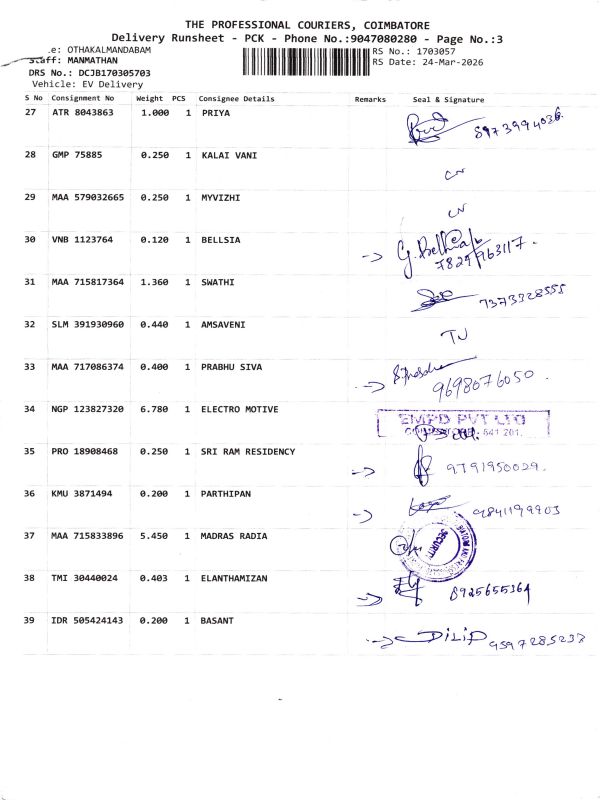 THE PROFESSIONAL COURIERS, COIMBATORE
Delivery Runsheet - PCK - Phone No.:9047080280 - Page No.:3
.e: OTHAKALMANDABAM RS No.: 1703057
Staff: MANMATHAN RS Date: 24-Mar-2026
DRS No.: DCJB170305703
Vehicle: EV Delivery
S No Consignment No Weight PCS Consignee Details Remarks Seal & Signature
27 ATR 8043863 1.000 1 PRIYA 8973994036
28 GMP 75885 0.250 1 KALAI VANI
29 MAA 579032665 0.250 1 MYVIZHI
30 VNB 1123764 0.120 1 BELLSIA G. Bellsia
7824963117.
31 MAA 715817364 1.360 1 SWATHI 7373328555
32 SLM 391930960 0.440 1 AMSAVENI TJ
33 MAA 717086374 0.400 1 PRABHU SIVA 9698076050.
34 NGP 123827320 6.780 1 ELECTRO MOTIVE EMPD PVT LTD
641 201.
35 PRO 18908468 0.250 1 SRI RAM RESIDENCY 9791950029.
36 KMU 3871494 0.200 1 PARTHIPAN 9841199903
37 MAA 715833896 5.450 1 MADRAS RADIA SECURITY
38 TMI 30440024 0.403 1 ELANTHAMIZAN 8925655364
39 IDR 505424143 0.200 1 BASANT DILIP 9597285237